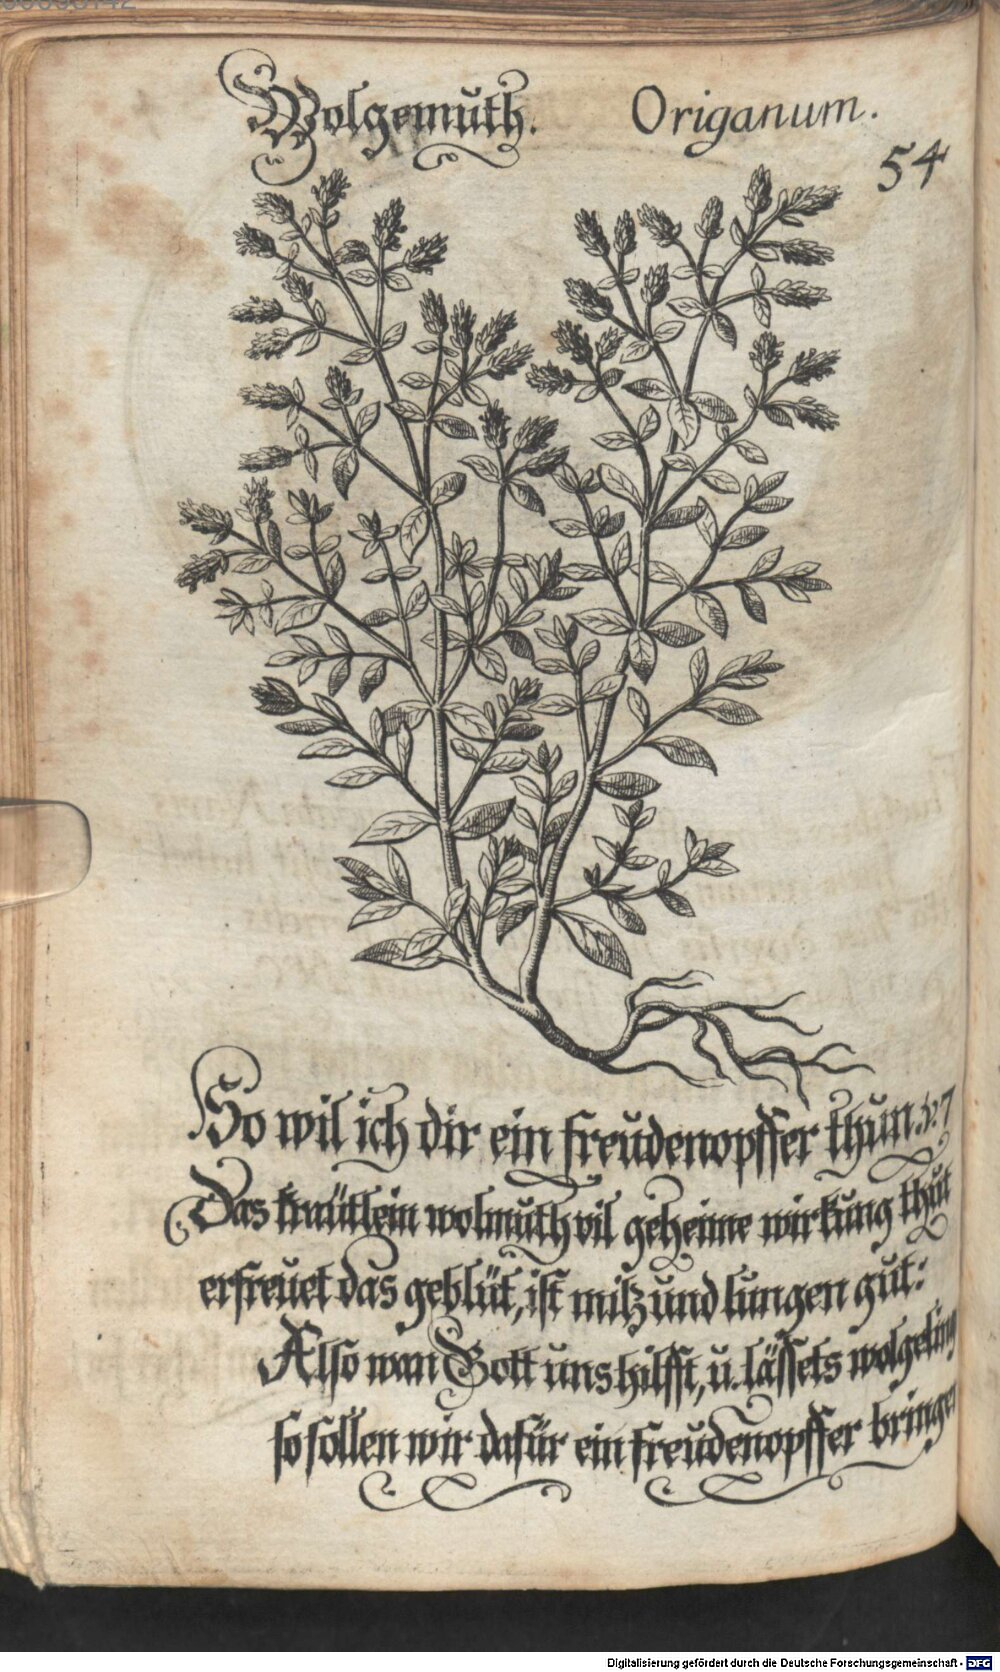 Wolgemuth.
Origanum.
54
So wil ich dir ein freudenopffer thun. v. 7
Das kräutlein wolmuth vil geheime wirkung thut
erfreuet das geblüt, ist milz und lungen gut:
Also wan Gott uns hilfft, u. lässets wolgeling
so sollen wir dafür ein freudenopffer bringe
Digitalisierung gefördert durch die Deutsche Forschungsgemeinschaft - DFG